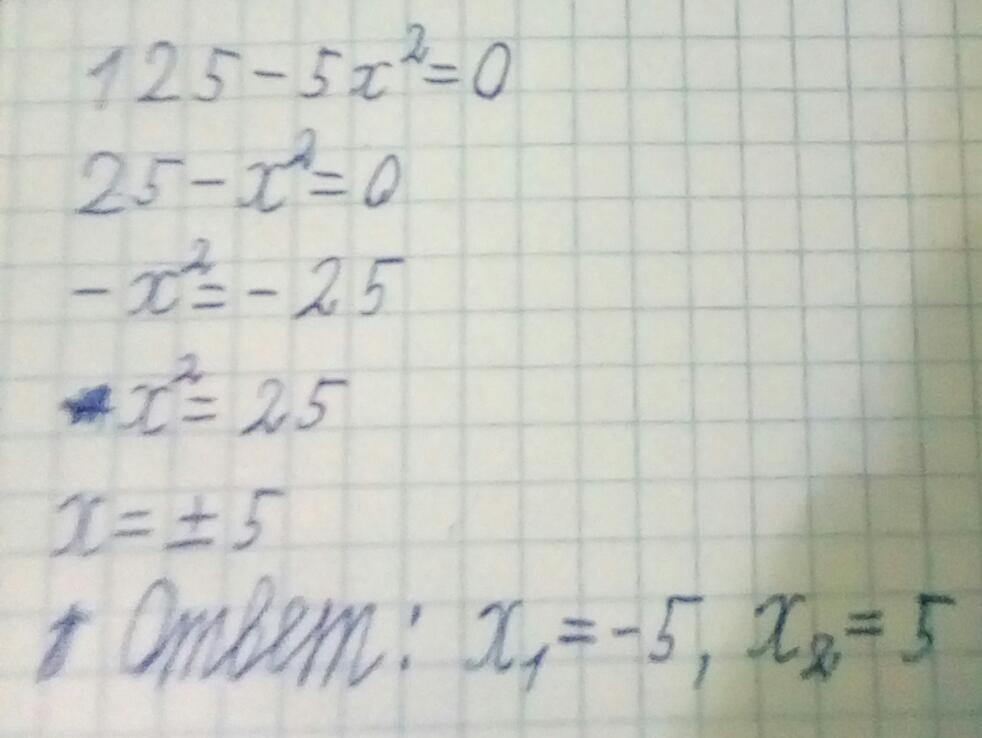 125-5x²=0
25-x²=0
-x²=-25
x²=25
x=±5
Ответ: x₁=-5, x₂=5